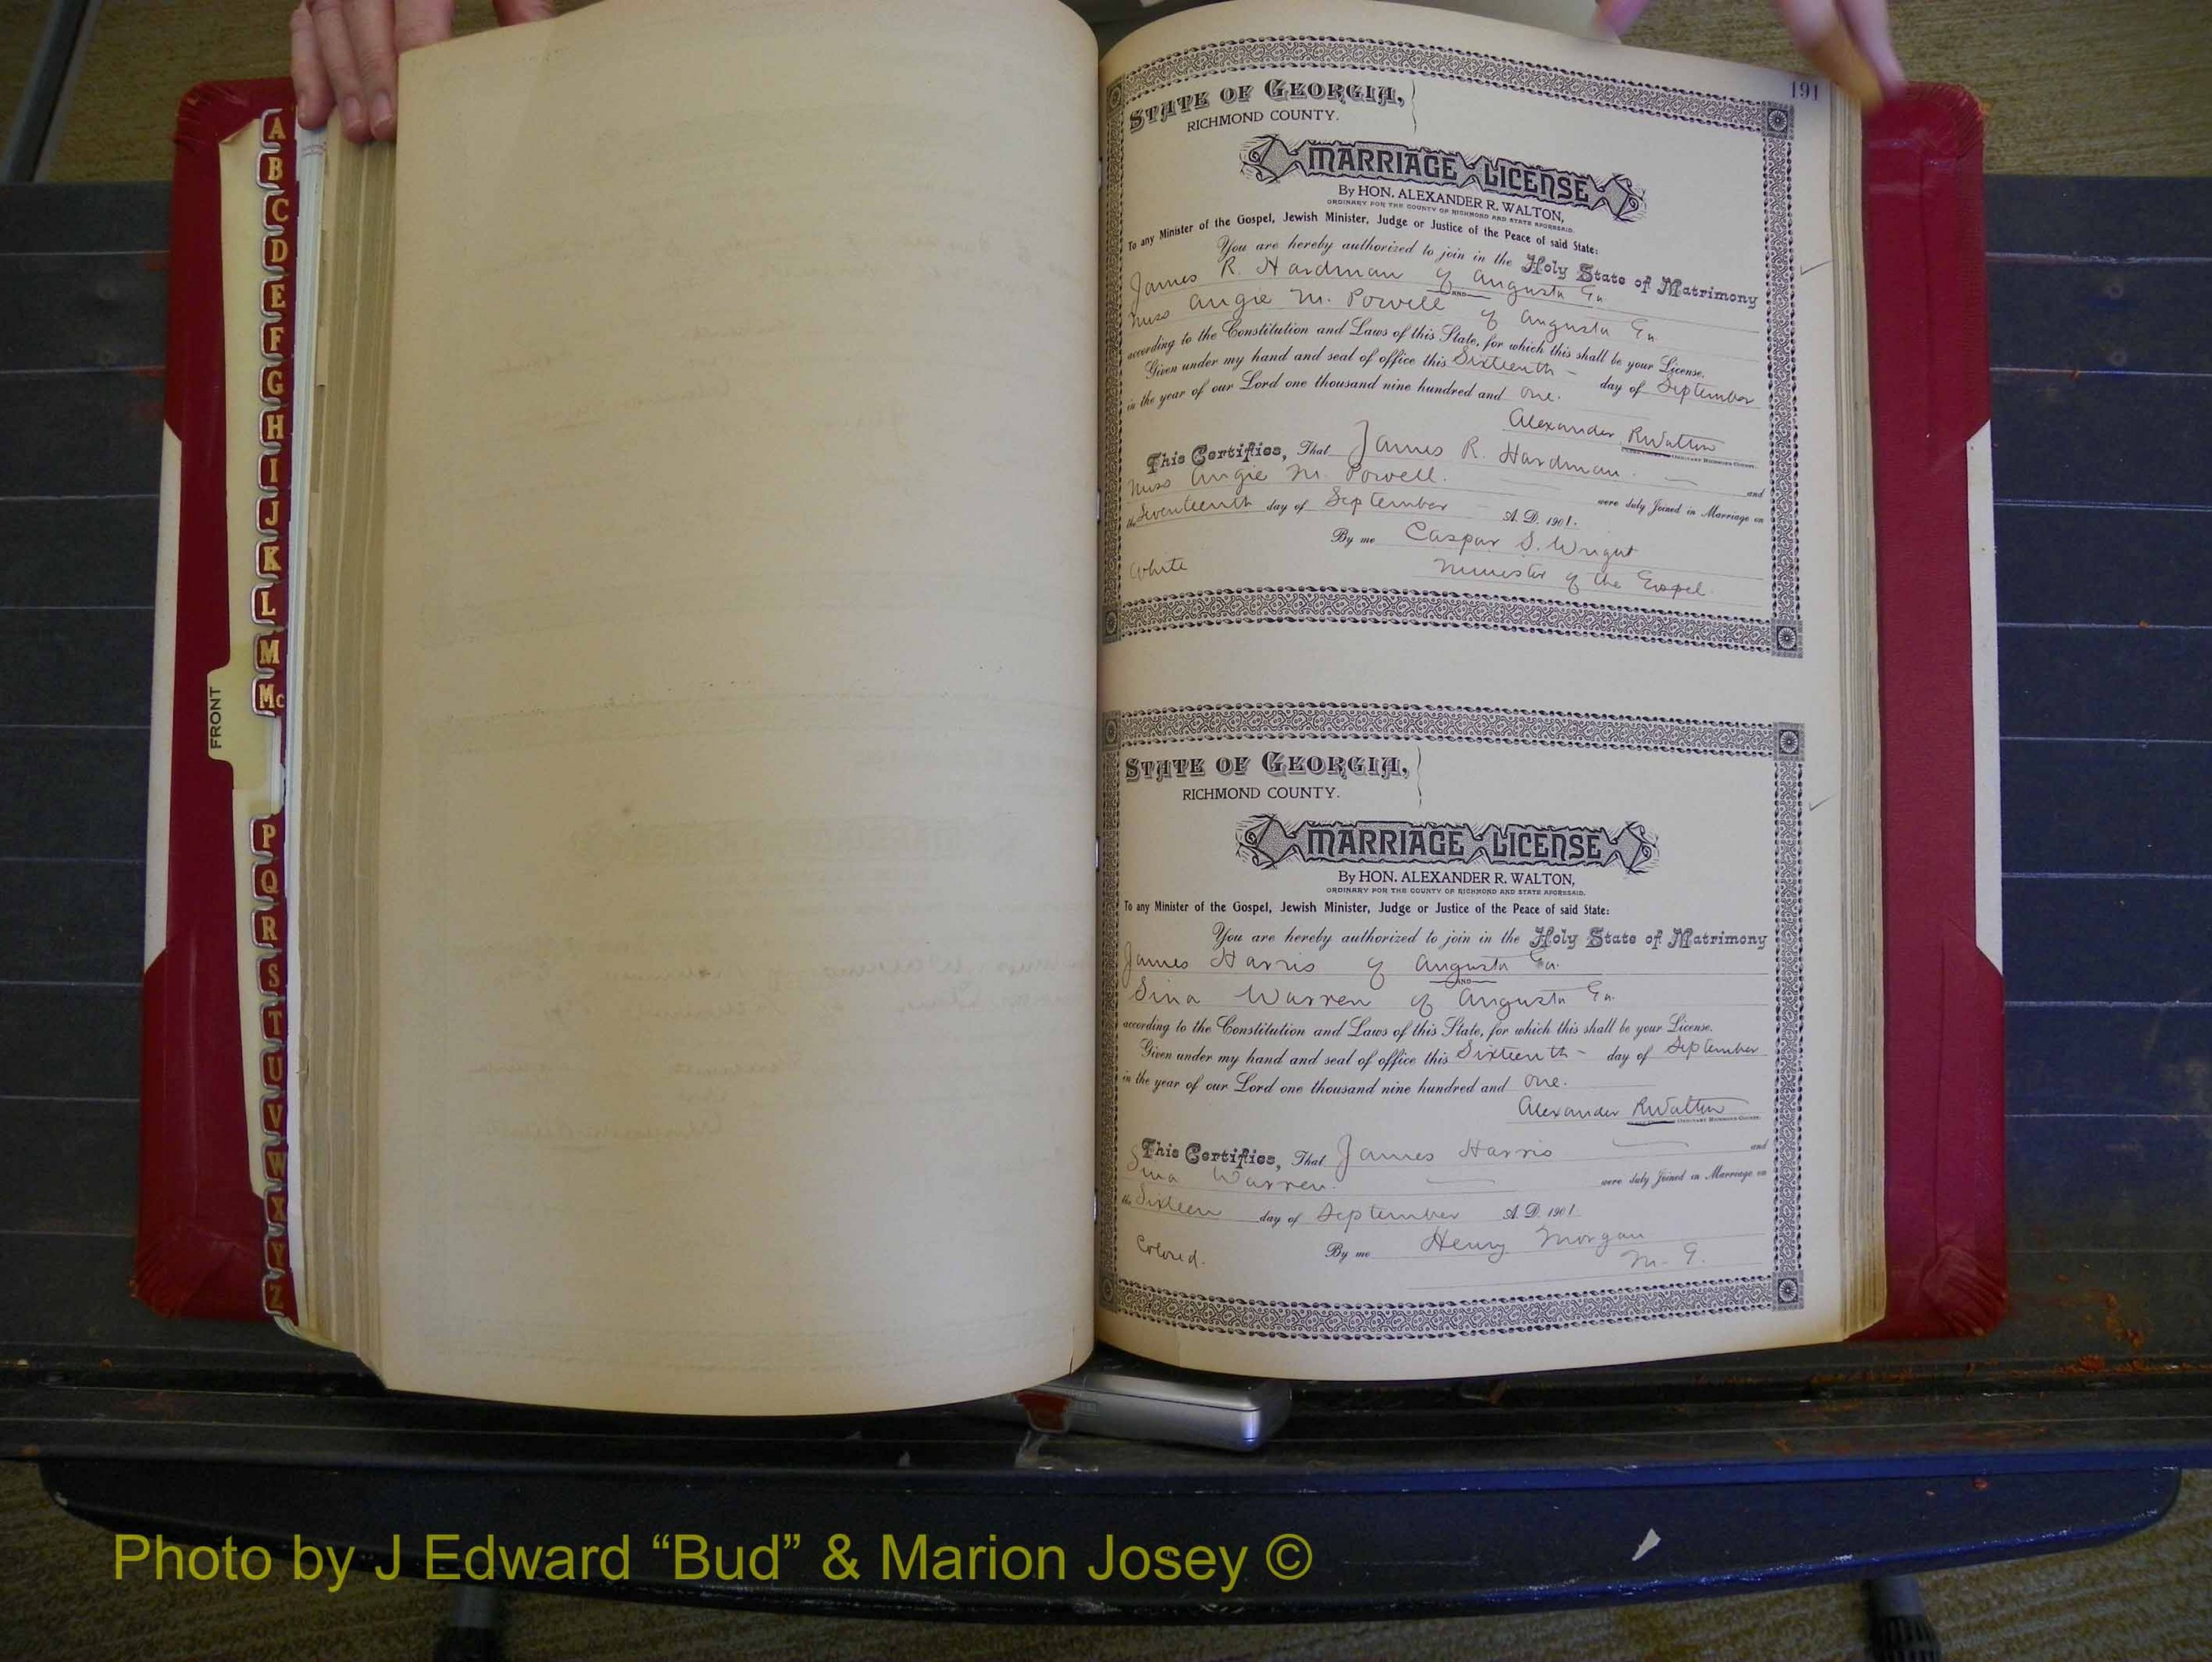 A
B
C
D
E
F
G
H
I
J
K
L
M
Mc
FRONT
P
Q
R
S
T
U
V
W
X
Y
Z
191
STATE OF GEORGIA,
RICHMOND COUNTY.
MARRIAGE LICENSE
By HON. ALEXANDER R. WALTON,
ORDINARY FOR THE COUNTY OF RICHMOND AND STATE AFORESAID.
To any Minister of the Gospel, Jewish Minister, Judge or Justice of the Peace of said State:
You are hereby authorized to join in the Holy State of Matrimony
James R. Hardman of Augusta Ga.
AND
Miss Angie M. Powell of Augusta Ga.
according to the Constitution and Laws of this State, for which this shall be your License.
Given under my hand and seal of office this Sixteenth - day of September
in the year of our Lord one thousand nine hundred and one.
Alexander R Walton
ORDINARY RICHMOND COUNTY.
This Certifies, That James R. Hardman. and
Miss Angie M. Powell. were duly Joined in Marriage on
the Seventeenth day of September A. D. 1901.
By me Caspar S. Wright
White Minister of the Gospel.
STATE OF GEORGIA,
RICHMOND COUNTY.
MARRIAGE LICENSE
By HON. ALEXANDER R. WALTON,
ORDINARY FOR THE COUNTY OF RICHMOND AND STATE AFORESAID.
To any Minister of the Gospel, Jewish Minister, Judge or Justice of the Peace of said State:
You are hereby authorized to join in the Holy State of Matrimony
James Harris of Augusta Ga.
AND
Sina Warren of Augusta Ga.
according to the Constitution and Laws of this State, for which this shall be your License.
Given under my hand and seal of office this Sixteenth - day of September
in the year of our Lord one thousand nine hundred and one.
Alexander R Walton
ORDINARY RICHMOND COUNTY.
This Certifies, That James Harris and
Sina Warren. were duly Joined in Marriage on
the Sixteen day of September A. D. 1901.
Colored. By me Henry Morgan
M. G.
Photo by J Edward “Bud” & Marion Josey ©